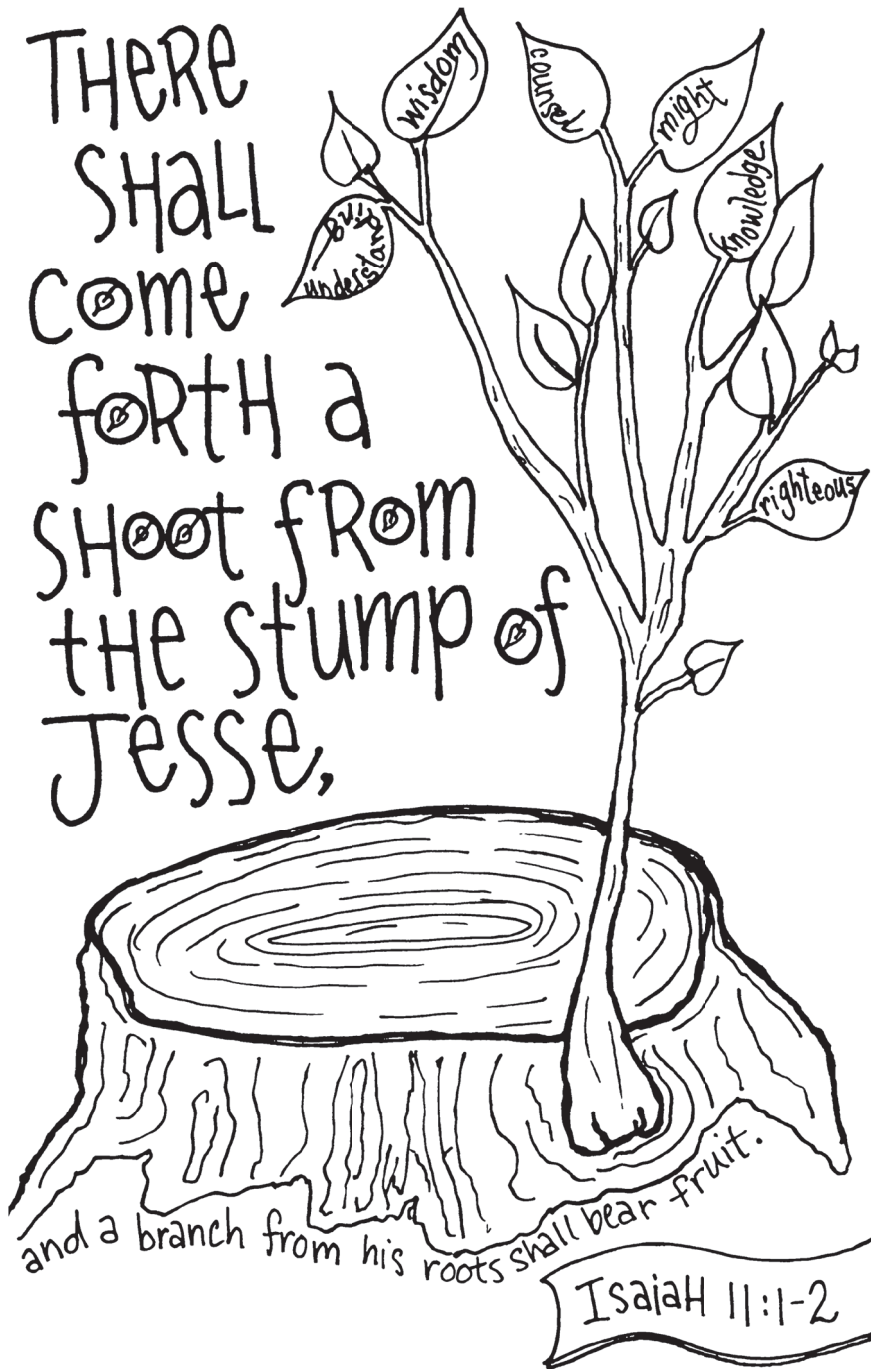 THeRe
SHaLL
come
foRtH a
SHoot fRom
tHe stump of
Jesse,
wisdom
counsel
might
understanding
knowledge
righteous
and a branch from his roots shall bear fruit.
IsaiaH 11:1-2